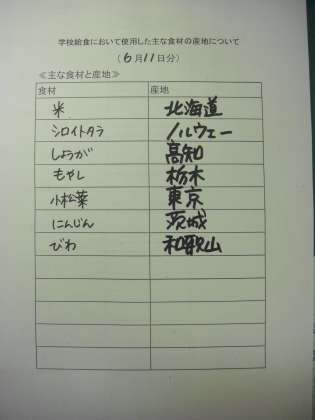 学校給食において使用した主な食材の産地について
（6月11日分）
≪主な食材と産地≫
食材 産地
米 北海道
シロイトタラ ノルウェー
しょうが 高知
もやし 栃木
小松菜 東京
にんじん 茨城
びわ 和歌山